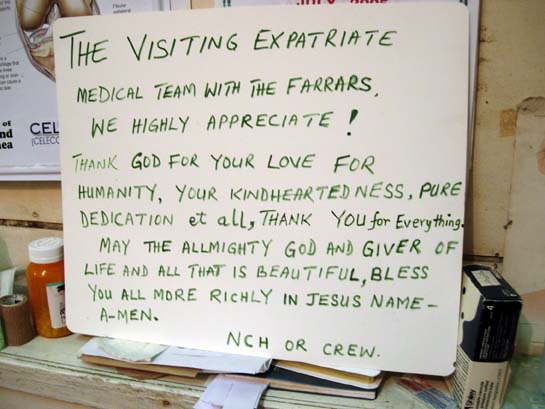 JULY 2005
THE VISITING EXPATRIATE
MEDICAL TEAM WITH THE FARRARS.
WE HIGHLY APPRECIATE!
THANK GOD FOR YOUR LOVE FOR
HUMANITY, YOUR KINDHEARTEDNESS, PURE
DEDICATION et all, THANK YOU for Everything.
MAY THE ALLMIGHTY GOD AND GIVER OF
LIFE AND ALL THAT IS BEAUTIFUL, BLESS
YOU ALL MORE RICHLY IN JESUS NAME -
A-MEN.
NCH OR CREW.
CEL
(CELECO